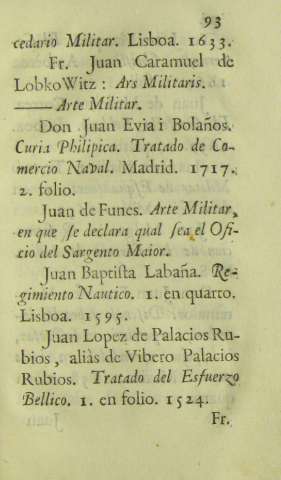 93
cedario Militar. Lisboa. 1633.
Fr. Juan Caramuel de
LobkoWitz : Ars Militaris.
——— Arte Militar.
Don Juan Evia i Bolaños.
Curia Philipica. Tratado de Co-
mercio Naval. Madrid. 1717.
2. folio.
Juan de Funes. Arte Militar,
en que ſe declara qual ſea el Ofi-
cio del Sargento Maior.
Juan Baptiſta Labaña. Re-
gimiento Nautico. 1. en quarto.
Lisboa. 1595.
Juan Lopez de Palacios Ru-
bios, aliàs de Vibero Palacios
Rubios. Tratado del Esfuerzo
Bellico. 1. en folio. 1524.
Fr.